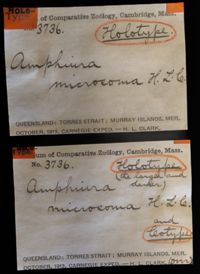 HOLO-
TYPE
of Comparative Zoölogy, Cambridge, Mass.
No. 3736. Holotype.
Amphiura
microcoma H.L.C.
QUEENSLAND: TORRES STRAIT; MURRAY ISLANDS, MER.
OCTOBER, 1913, CARNEGIE EXPED. — H. L. CLARK.
um of Comparative Zoölogy, Cambridge, Mass.
No. 3736. Holotype
(the larger and
darker)
Amphiura
microcoma H.L.C.
and
Cotype
QUEENSLAND: TORRES STRAIT; MURRAY ISLANDS, MER.
OCTOBER, 1913, CARNEGIE EXPED. — H. L. CLARK.